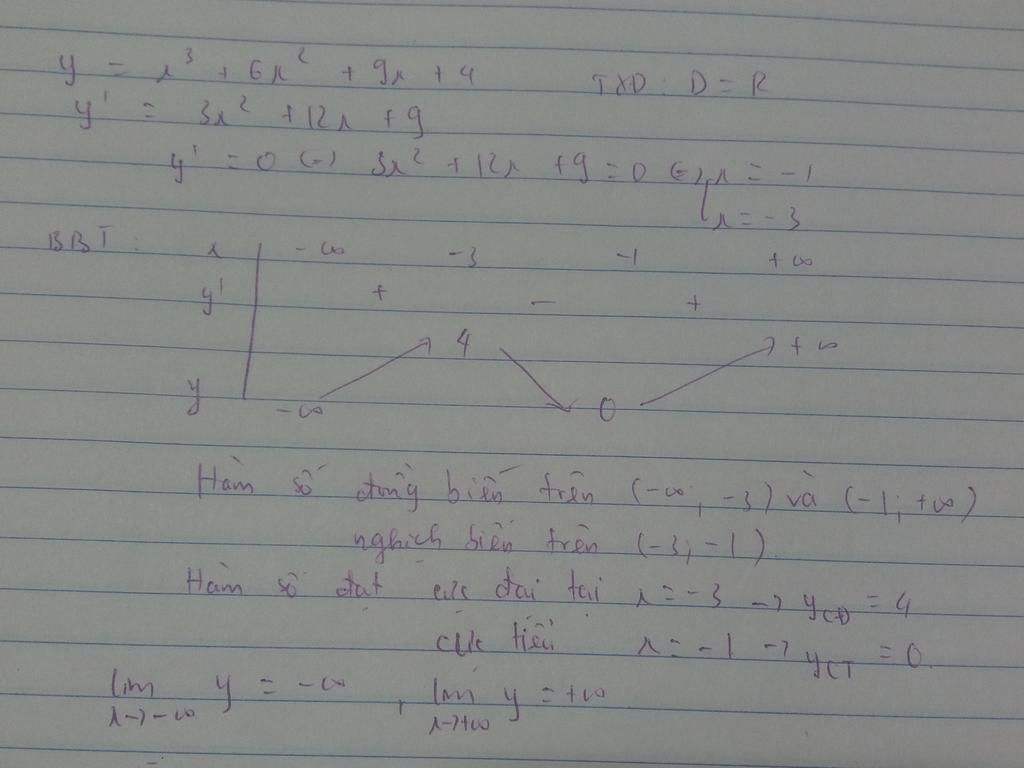 y = x³ + 6x² + 9x + 4 TXD: D = R
y' = 3x² + 12x + 9
y' = 0 (=) 3x² + 12x + 9 = 0 (=) x = -1
x = -3
BBT: x -∞ -3 -1 +∞
y' + - +
4 +∞
y -∞ 0
Hàm số đồng biến trên (-∞; -3) và (-1; +∞)
nghịch biến trên (-3; -1)
Hàm số đạt cực đại tại x = -3 → yCĐ = 4
cực tiểu x = -1 → yCT = 0.
lim y = -∞ , lim y = +∞
x→-∞ x→+∞